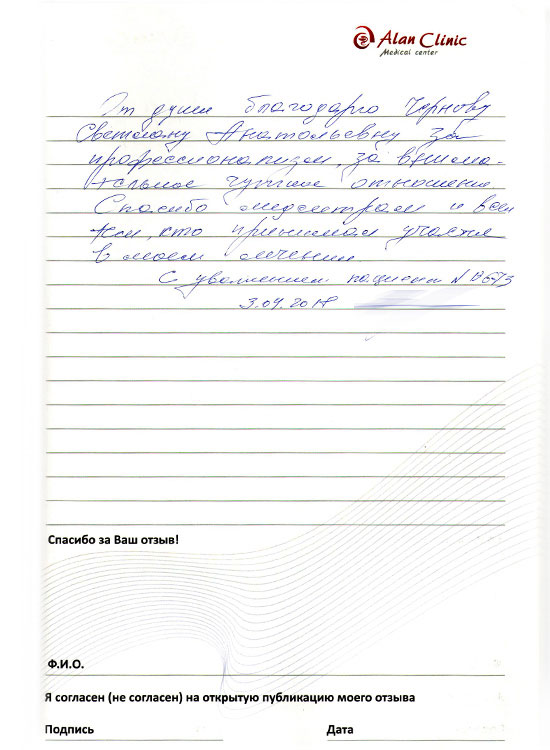 Alan Clinic
Medical center
От души благодарю Чернову
Светлану Анатольевну за
профессионализм, за внима-
тельное чуткое отношение
Спасибо медсестрам и всем
тем, кто принимал участие
в моем лечении
С уважением пациент N
3.04.2018
Спасибо за Ваш отзыв!
Ф.И.О.
Я согласен (не согласен) на открытую публикацию моего отзыва
Подпись Дата